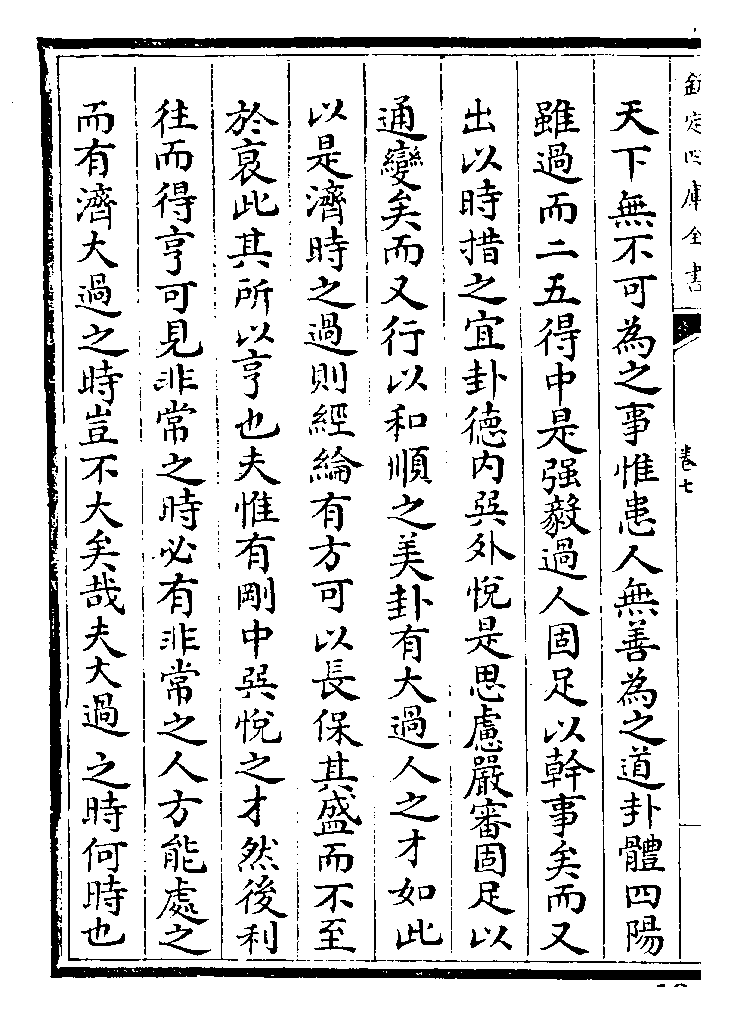 欽定四庫全書
卷七
天下無不可為之事惟患人無善為之道卦體四陽
雖過而二五得中是强毅過人固足以幹事矣而又
出以時措之宜卦德内巽外悅是思慮嚴審固足以
通變矣而又行以和順之美卦有大過人之才如此
以是濟時之過則經綸有方可以長保其盛而不至
於衰此其所以亨也夫惟有剛中巽悅之才然後利
往而得亨可見非常之時必有非常之人方能處之
而有濟大過之時豈不大矣哉夫大過之時何時也